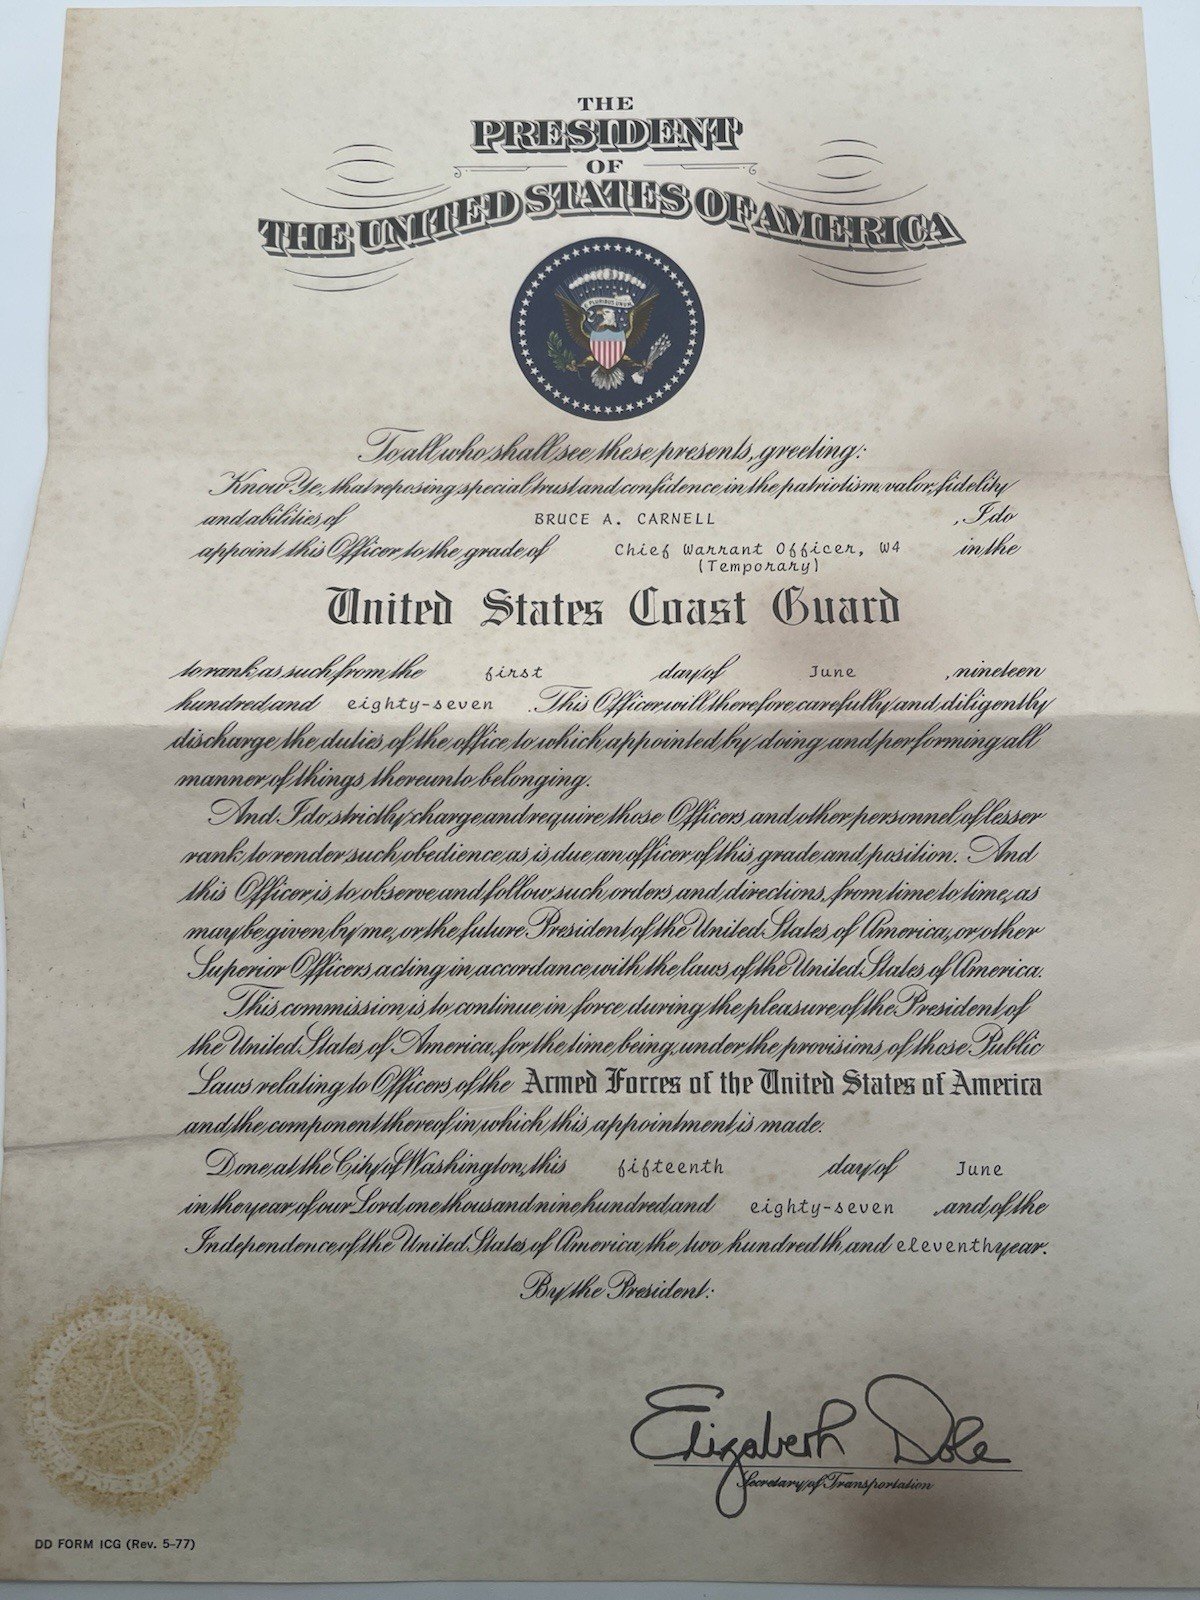 THE
PRESIDENT
OF
THE UNITED STATES OF AMERICA
E PLURIBUS UNUM
To all who shall see these presents, greeting:
Know Ye, that reposing special trust and confidence in the patriotism, valor, fidelity
and abilities of BRUCE A. CARNELL , I do
appoint this Officer to the grade of Chief Warrant Officer, W4 in the
(Temporary)
United States Coast Guard
to rank as such from the first day of June , nineteen
hundred and eighty-seven . This Officer will therefore carefully and diligently
discharge the duties of the office to which appointed by doing and performing all
manner of things thereunto belonging.
And I do strictly charge and require those Officers and other personnel of lesser
rank to render such obedience as is due an officer of this grade and position. And
this Officer is to observe and follow such orders and directions, from time to time, as
may be given by me, or the future President of the United States of America, or other
Superior Officers acting in accordance with the laws of the United States of America.
This commission is to continue in force during the pleasure of the President of
the United States of America, for the time being, under the provisions of those Public
Laws relating to Officers of the Armed Forces of the United States of America
and the component thereof in which this appointment is made.
Done at the City of Washington, this fifteenth day of June
in the year of our Lord one thousand nine hundred and eighty-seven , and of the
Independence of the United States of America the two hundredth and eleventh year.
By the President:
Elizabeth Dole
Secretary of Transportation
DD FORM 1CG (Rev. 5-77)